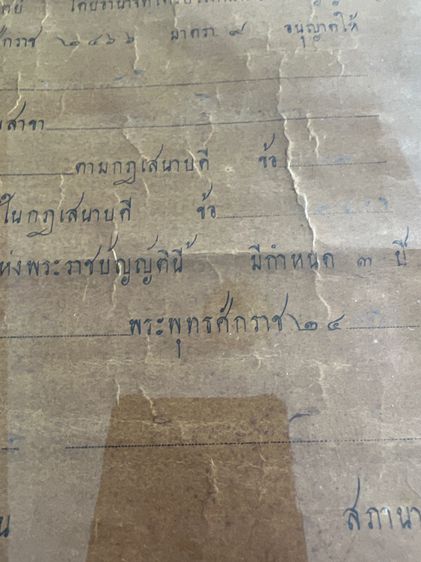 โดยอำนาจ
ศักราช ๒๔๖๖ มาตรา ๙ อนุญาตให้
สาขา
ตามกฎเสนาบดี ข้อ
ในกฎเสนาบดี ข้อ
แห่งพระราชบัญญัตินี้ มีกำหนด ๓ ปี
พระพุทธศักราช ๒๔
สภานา